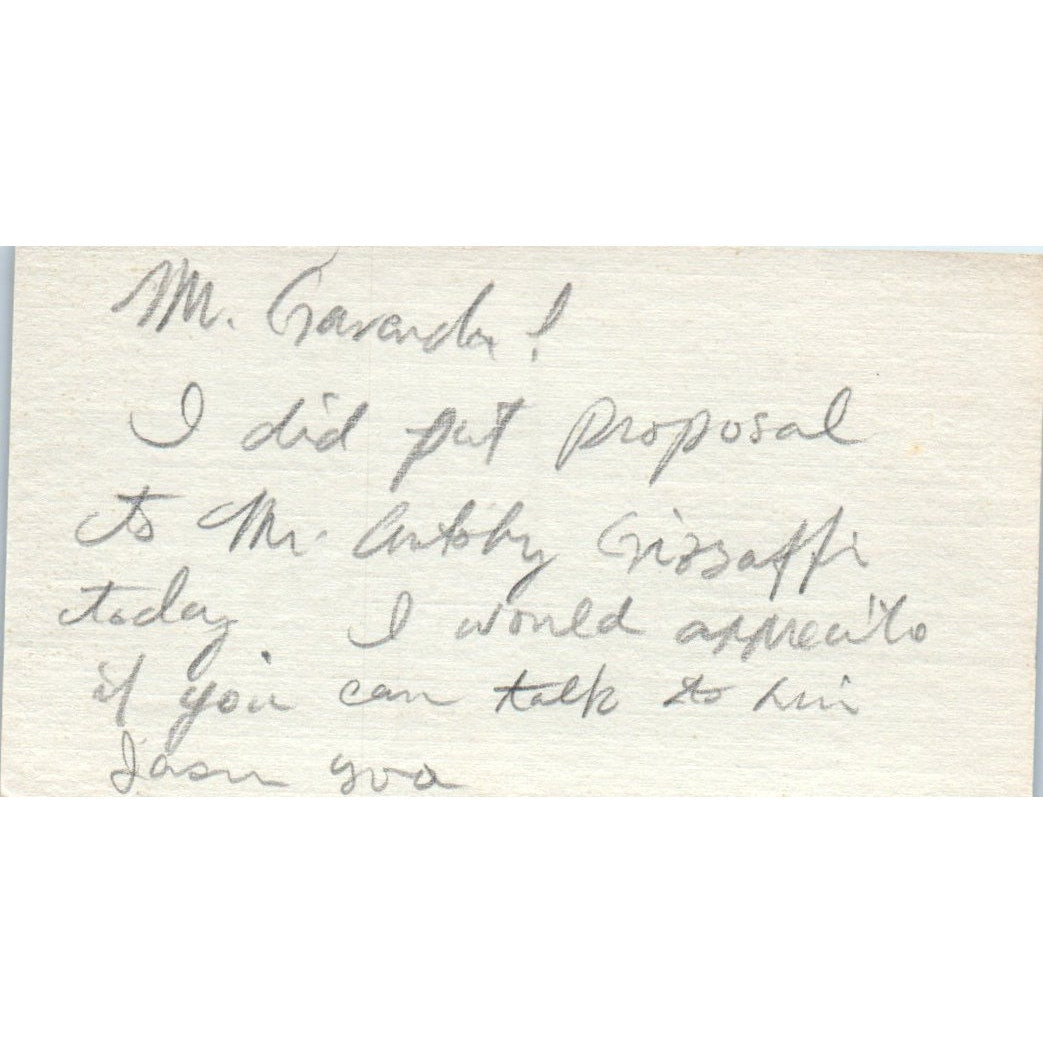 Mr. Gavarda!
I did put proposal
to Mr. Antohy Grizzaffi
today. I would appreciate
if you can talk to him
Jason yoo